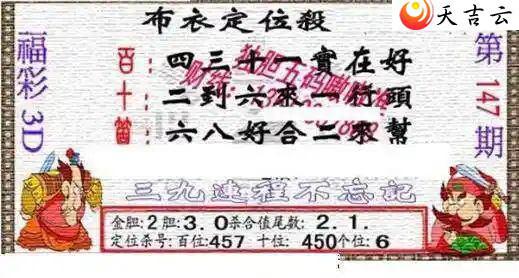 天吉云
布衣定位殺
福彩3D
第147期
百：四三十一實在好
十：二到六來一行頭
個：六八好合二來幫
三九连程不忘記
金胆:2胆:3.0杀合值尾数:2.1.
定位杀号:百位:457十位:450个位:6